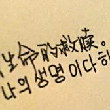 生命的救赎。
나의 생명 이다하